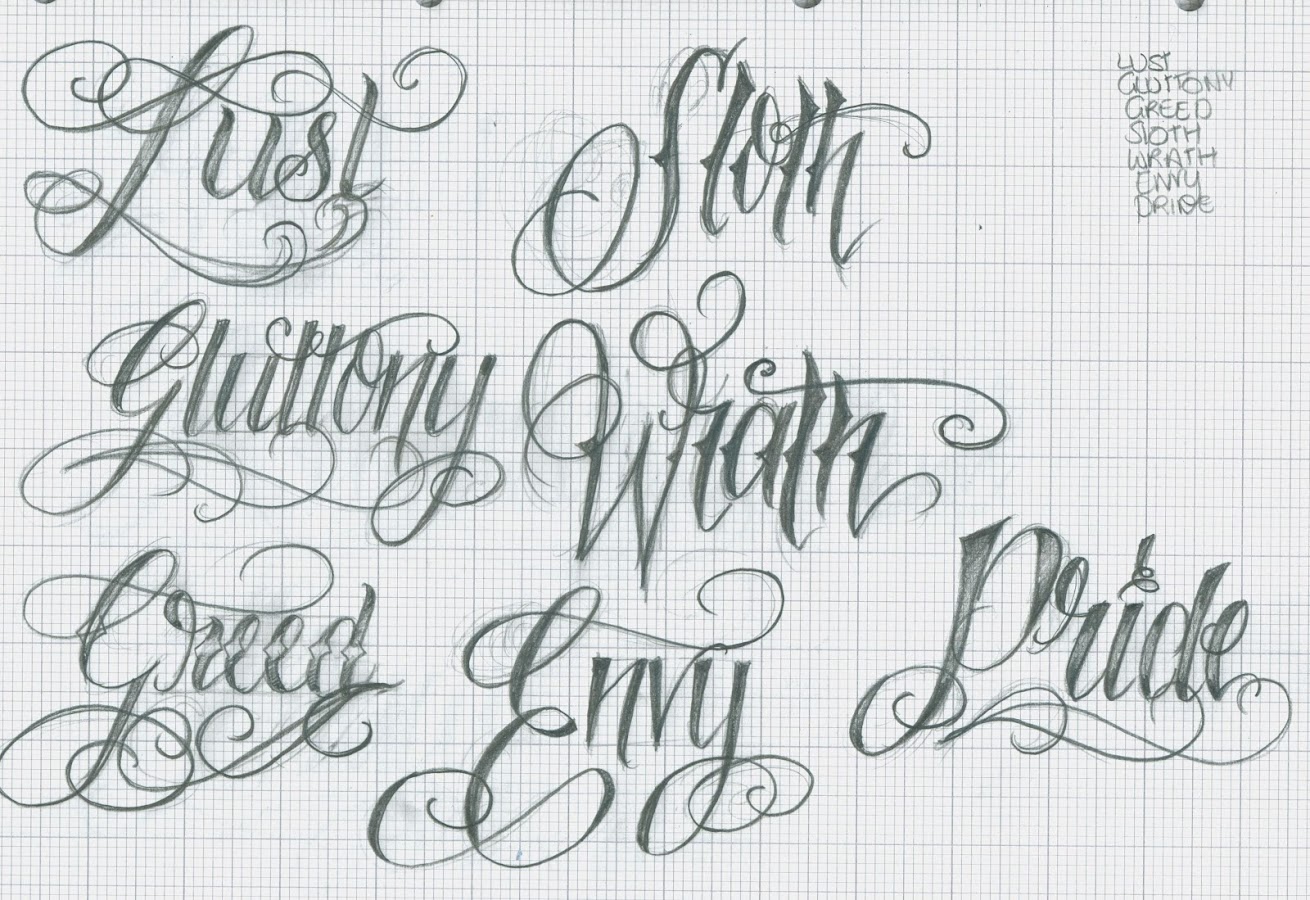 Lust
Sloth
Gluttony
Wrath
Greed
Envy
Pride
LUST
GLUTTONY
GREED
SLOTH
WRATH
ENVY
PRIDE